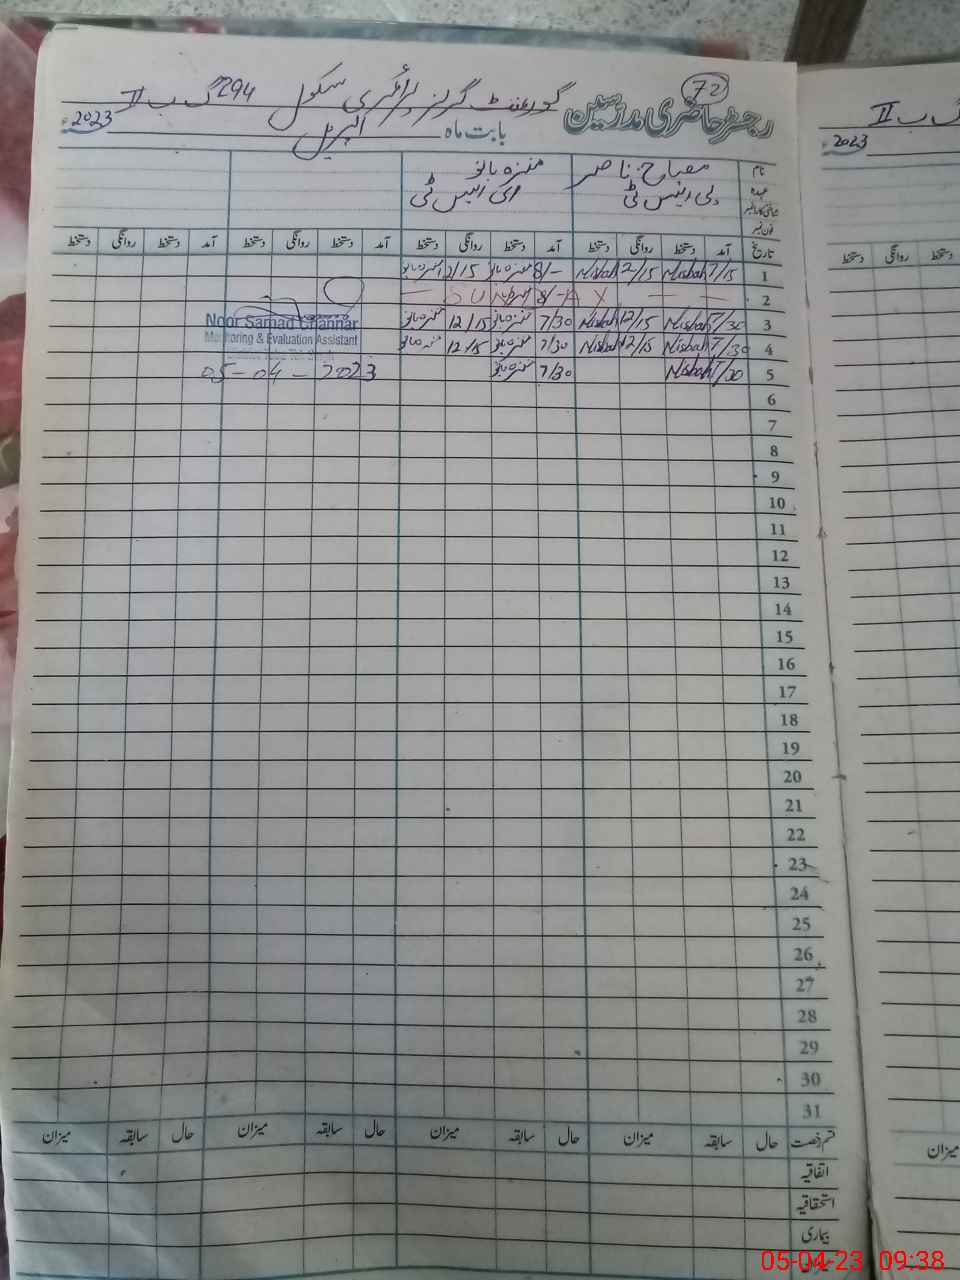 72
گورنمنٹ گرلز پرائمری سکول 294 گ ب II
رجسٹر حاضری مدرسین
بابت ماہ اپریل 2023ء
نام مصباح ناصر منزہ بانو
عہدہ پی ایس ٹی ای ایس ٹی
شناختی کارڈ نمبر
فون نمبر
تاریخ آمد دستخط روانگی دستخط آمد دستخط روانگی دستخط آمد دستخط روانگی دستخط آمد دستخط روانگی دستخط
1 7/15 Misbah 12/15 Misbah 8/- منزہ بانو 12/15 منزہ بانو
2 — — X A 8/- U S —
3 7/30 Misbah 12/15 Misbah 7/30 منزہ بانو 12/15 منزہ بانو
4 7/30 Misbah 12/15 Misbah 7/30 منزہ بانو 12/15 منزہ بانو
5 7/30 Misbah 7/30 منزہ بانو
Noor Samad Channar
Monitoring & Evaluation Assistant
05-04-2023
6
7
8
9
10
11
12
13
14
15
16
17
18
19
20
21
22
23
24
25
26
27
28
29
30
31
قسم رخصت حال سابقہ میزان حال سابقہ میزان حال سابقہ میزان حال سابقہ میزان
اتفاقیہ
استحقاقیہ
بیماری
گ ب II
2023ء
دستخط روانگی دستخط
میزان
05-04-23 09:38